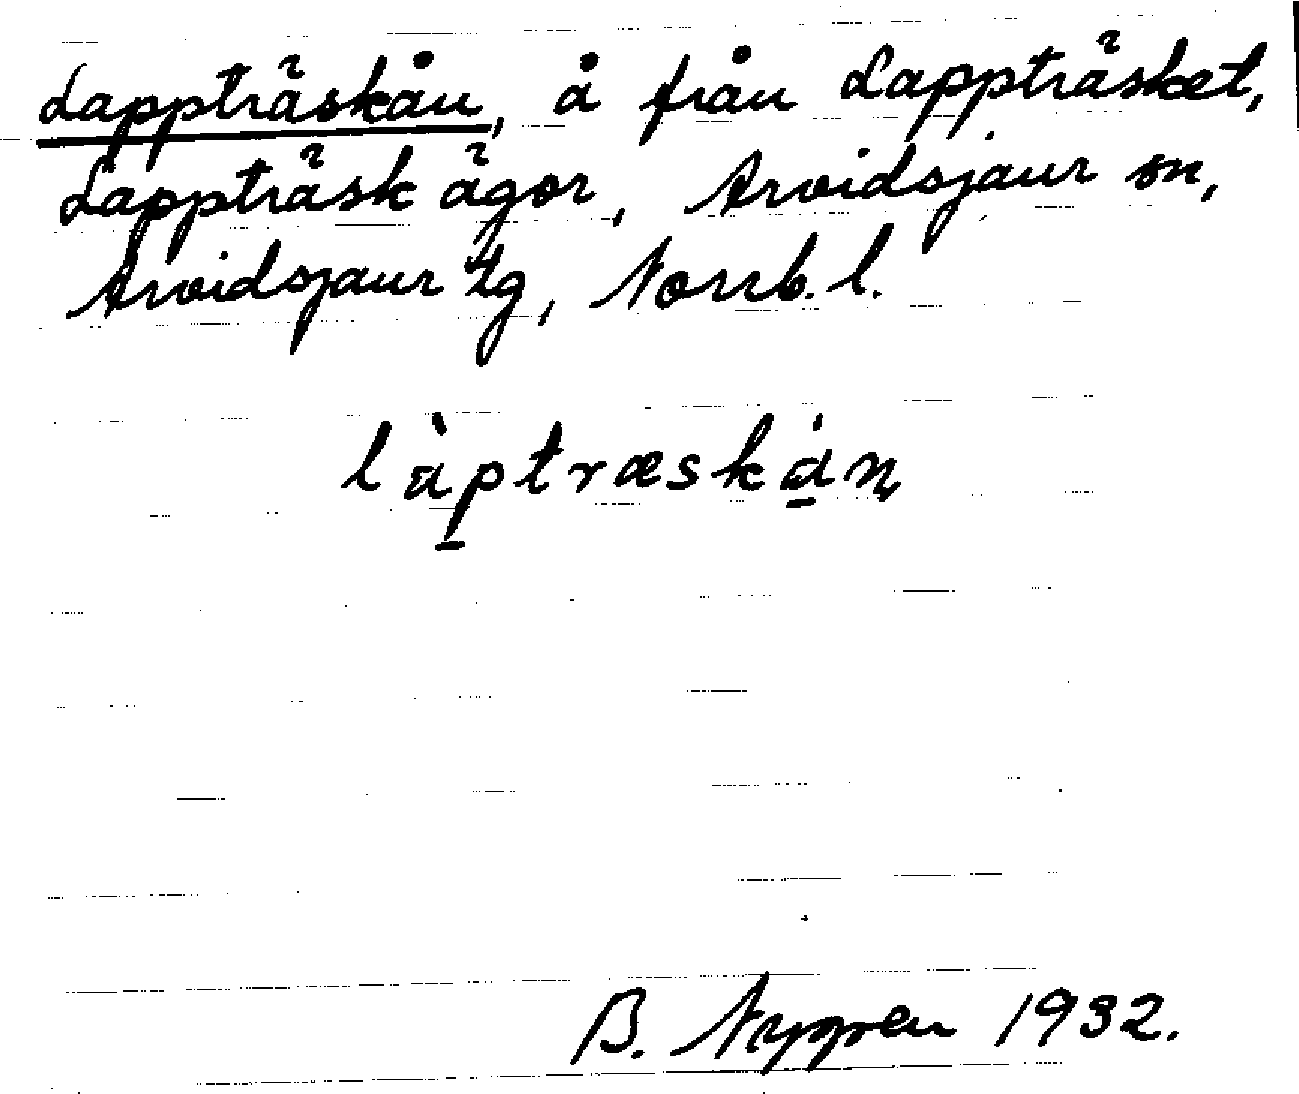 Lappträskån, å från Lappträsket,
Lappträsk ägor, Arvidsjaur sn,
Arvidsjaur tg, Norrb. l.
làp̱træskǻ̱n
B. Nygren 1932.